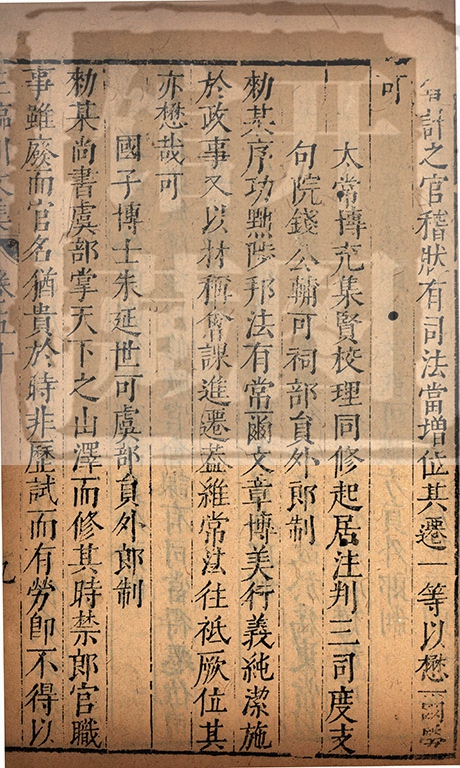 計之官稽狀有司法當增位其遷一等以懋
可
太常博充集賢校理同修起居注判三司度支
句院錢公輔可祠部員外郎制
勑某序功黜陟邦法有常爾文章博美行義純潔施
於政事又以材稱會課進遷蓋維常法往祗厥位其
亦懋哉可
國子博士朱延世可虞部員外郎制
勑某尚書虞部掌天下之山澤而修其時禁郎官職
事雖廢而官名猶貴於時非歷試而有勞卽不得以
臨川文集 卷五十 九